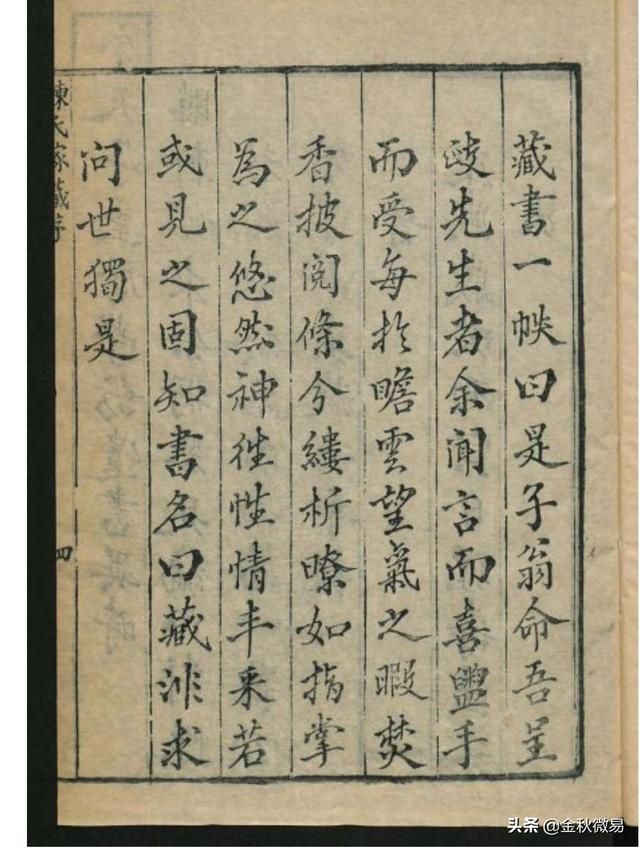 藏書一帙曰是子翁命吾呈
歧先生者余聞言而喜盥手
而受每扵瞻雲望氣之暇焚
香披閱條分縷析瞭如指掌
為之悠然神徃性情丰采若
或見之固知書名曰藏非求
问世獨是
陳氏家藏序
四
头条 @金秋微易